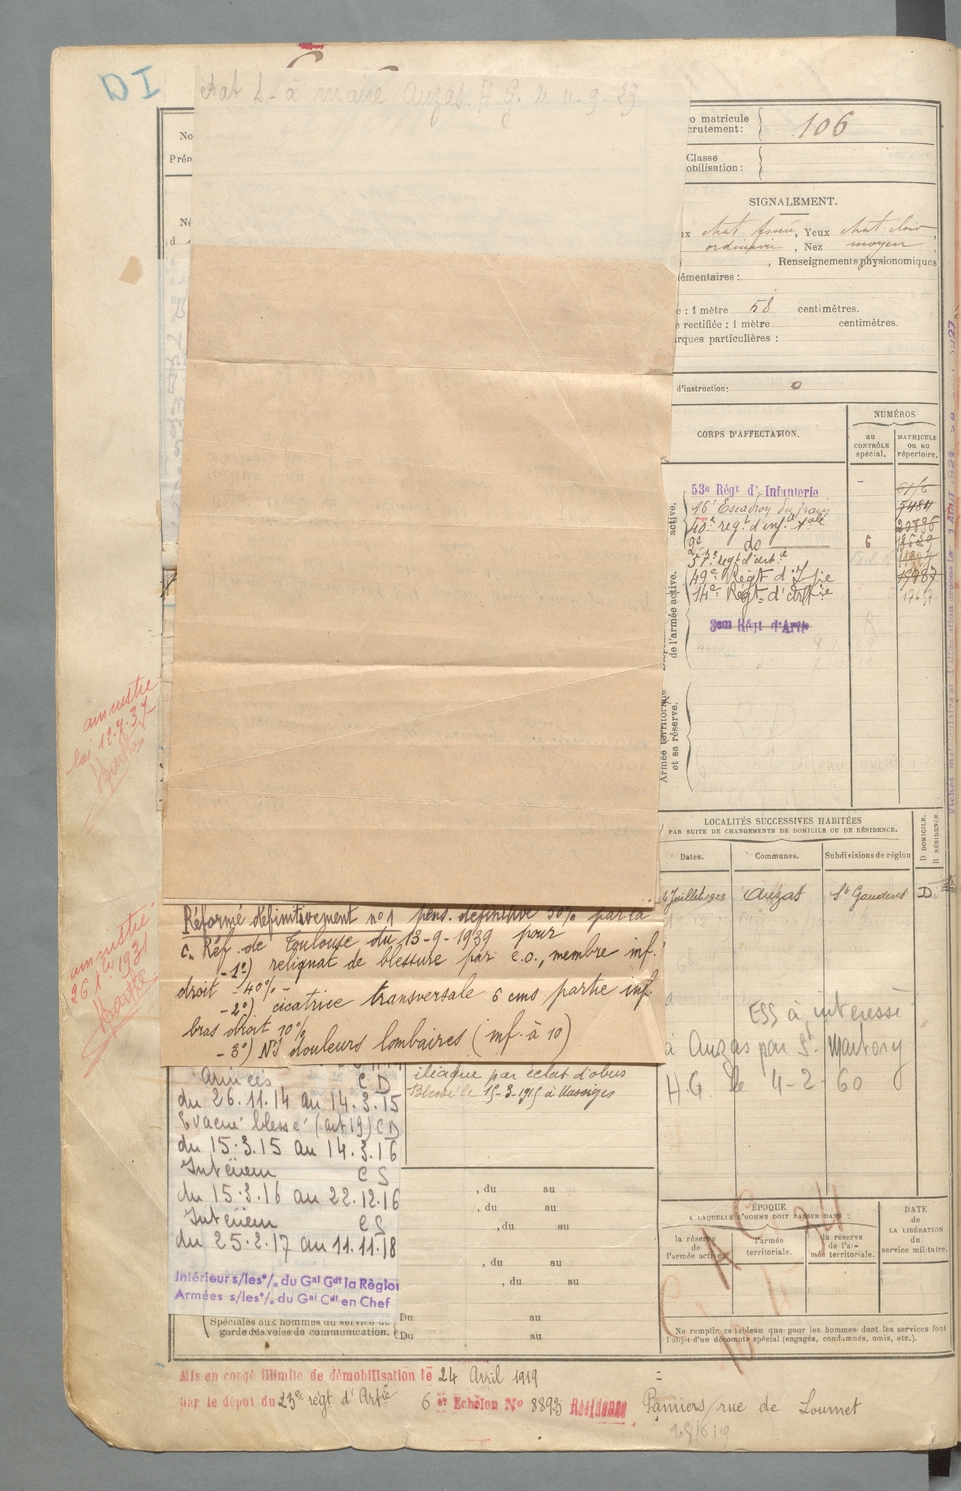 DI
Etat S. à maire Auzas H.G. le 11-9-29
No
Prén
Né
d
o matricule
crutement: 106
Classe
obilisation:
SIGNALEMENT.
ux chat. foncé, Yeux chat clair,
ordinaire, Nez moyen
, Renseignements physionomiques
lémentaires:
e : 1 mètre 58 centimètres.
e rectifiée : 1 mètre centimètres.
arques particulières :
d'instruction: 0
CORPS D'AFFECTATION.
NUMÉROS
au CONTRÔLE spécial.
MATRICULE ou au répertoire.
active.
de l'armée active.
Armée territoriale
et sa réserve.
53e Régt d'Infanterie
16e Escadron du train 5484
10e reg. d'inf. 20896
9e do 6
57e regt d'art
49e Regt d'Ifie
14e Régt d'artie
3em Régt d'Artie
amnistié
loi 12.7.37
LOCALITÉS SUCCESSIVES HABITÉES
PAR SUITE DE CHANGEMENTS DE DOMICILE OU DE RÉSIDENCE.
D DOMICILE.
R RÉSIDENCE
Dates. Communes. Subdivisions de région
6 Juillet 1923 Auzas St Gaudens D
amnistié
26 1931
Réformé définitivement no 1 pens. définitive 50% par la
c. Réf. de Toulouse du 13-9-1939 pour
-1°) reliquat de blessure par e.o., membre inf.
droit - 40% -
-2°) cicatrice transversale 6 cms partie inf.
bras droit 10%
-3°) NI douleurs lombaires (inf. à 10)
ESS à intéressé
à Auzas par St-Martory
H.G. le 4-2-60
iliaque par éclat d'obus
Blessé le 15-3-1915 à Massiges
Armées CD
du 26.11.14 au 14.3.15
Evacué blessé (art 19) CD
du 15.3.15 au 14.3.16
Intérieur CS
du 15.3.16 au 22.12.16
Intérieur CS
du 25.2.17 au 11.11.18
Intérieur s/les o/. du Gal Gdt la Région
Armées s/les o/. du Gal Cdt en Chef
, du au
, du au
, du au
, du au
, du au
Du au
Du au
Spéciales aux hommes du service de
garde des voies de communication.
ÉPOQUE
A LAQUELLE L'HOMME DOIT PASSER DANS :
la réserve de l'armée active
l'armée territoriale.
la réserve de l'armée territoriale.
DATE
de
LA LIBÉRATION
du
service militaire.
Ne remplir ce tableau que pour les hommes dont les services font
l'objet d'un décompte spécial (engagés, condamnés, omis, etc.).
Mis en congé illimité de démobilisation le 24 Avril 1919
par le dépot du 23e régt d'Artie 6 et Echelon No 8893 Résidence Pamiers rue de Loumet
28/6/19